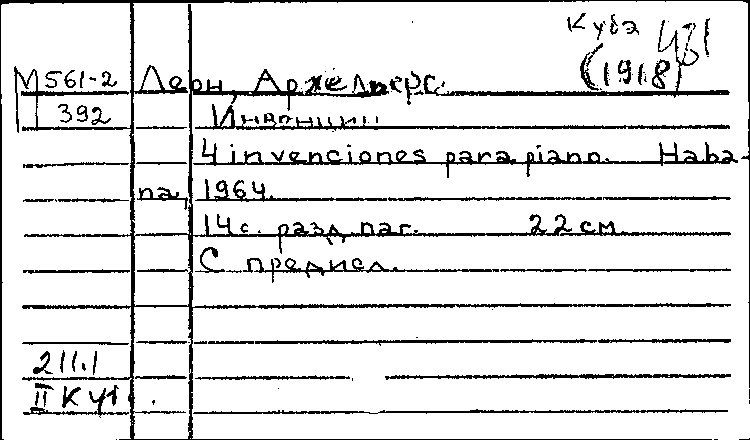 Куба 431
М561-2 Леон, Аржельерс. (1918)
392 Инвенции
4 invenciones para piano. Haba-
na, 1964.
14 с. разд. паг. 22 см.
С предисл.
211.1
II Куб.